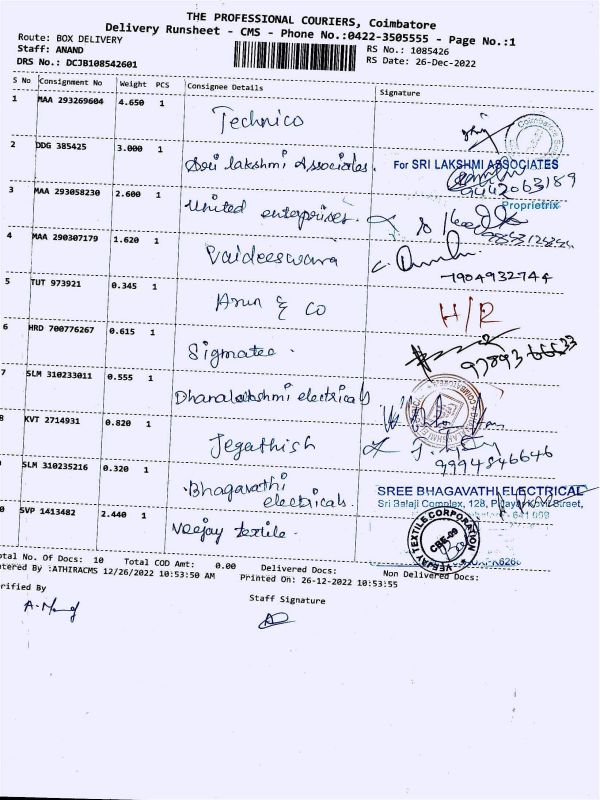 THE PROFESSIONAL COURIERS, Coimbatore
Delivery Runsheet - CMS - Phone No.:0422-3505555 - Page No.:1
Route: BOX DELIVERY
RS No.: 1085426
Staff: ANAND
RS Date: 26-Dec-2022
DRS No.: DCJB108542601
S No Consignment No Weight PCS Consignee Details Signature
1 MAA 293269604 4.650 1 Technico
2 DDG 385425 3.000 1 Sri lakshmi Associates.
For SRI LAKSHMI ASSOCIATES
9442063189
Proprietrix
3 MAA 293058230 2.600 1 United enterprises.
4 MAA 290307179 1.620 1 Vaideeswara
7904932744
5 TUT 973921 0.345 1 Arun & Co
H/R
6 HRD 700776267 0.615 1 Sigmatec.
7 SLM 310233011 0.555 1 Dhanalakshmi electricals
8 KVT 2714931 0.820 1 Jegathish
9994846646
SLM 310235216 0.320 1 Bhagavathi electricals.
SREE BHAGAVATHI ELECTRICAL
Sri Balaji Complex, 128,
Street,
0 SVP 1413482 2.440 1 Veejay textile.
VEEJAY TEXTILE CORPORATION
CBE-09
otal No. Of Docs: 10 Total COD Amt: 0.00 Delivered Docs: Non Delivered Docs:
ntered By :ATHIRACMS 12/26/2022 10:53:50 AM Printed On: 26-12-2022 10:53:55
rified By
Staff Signature